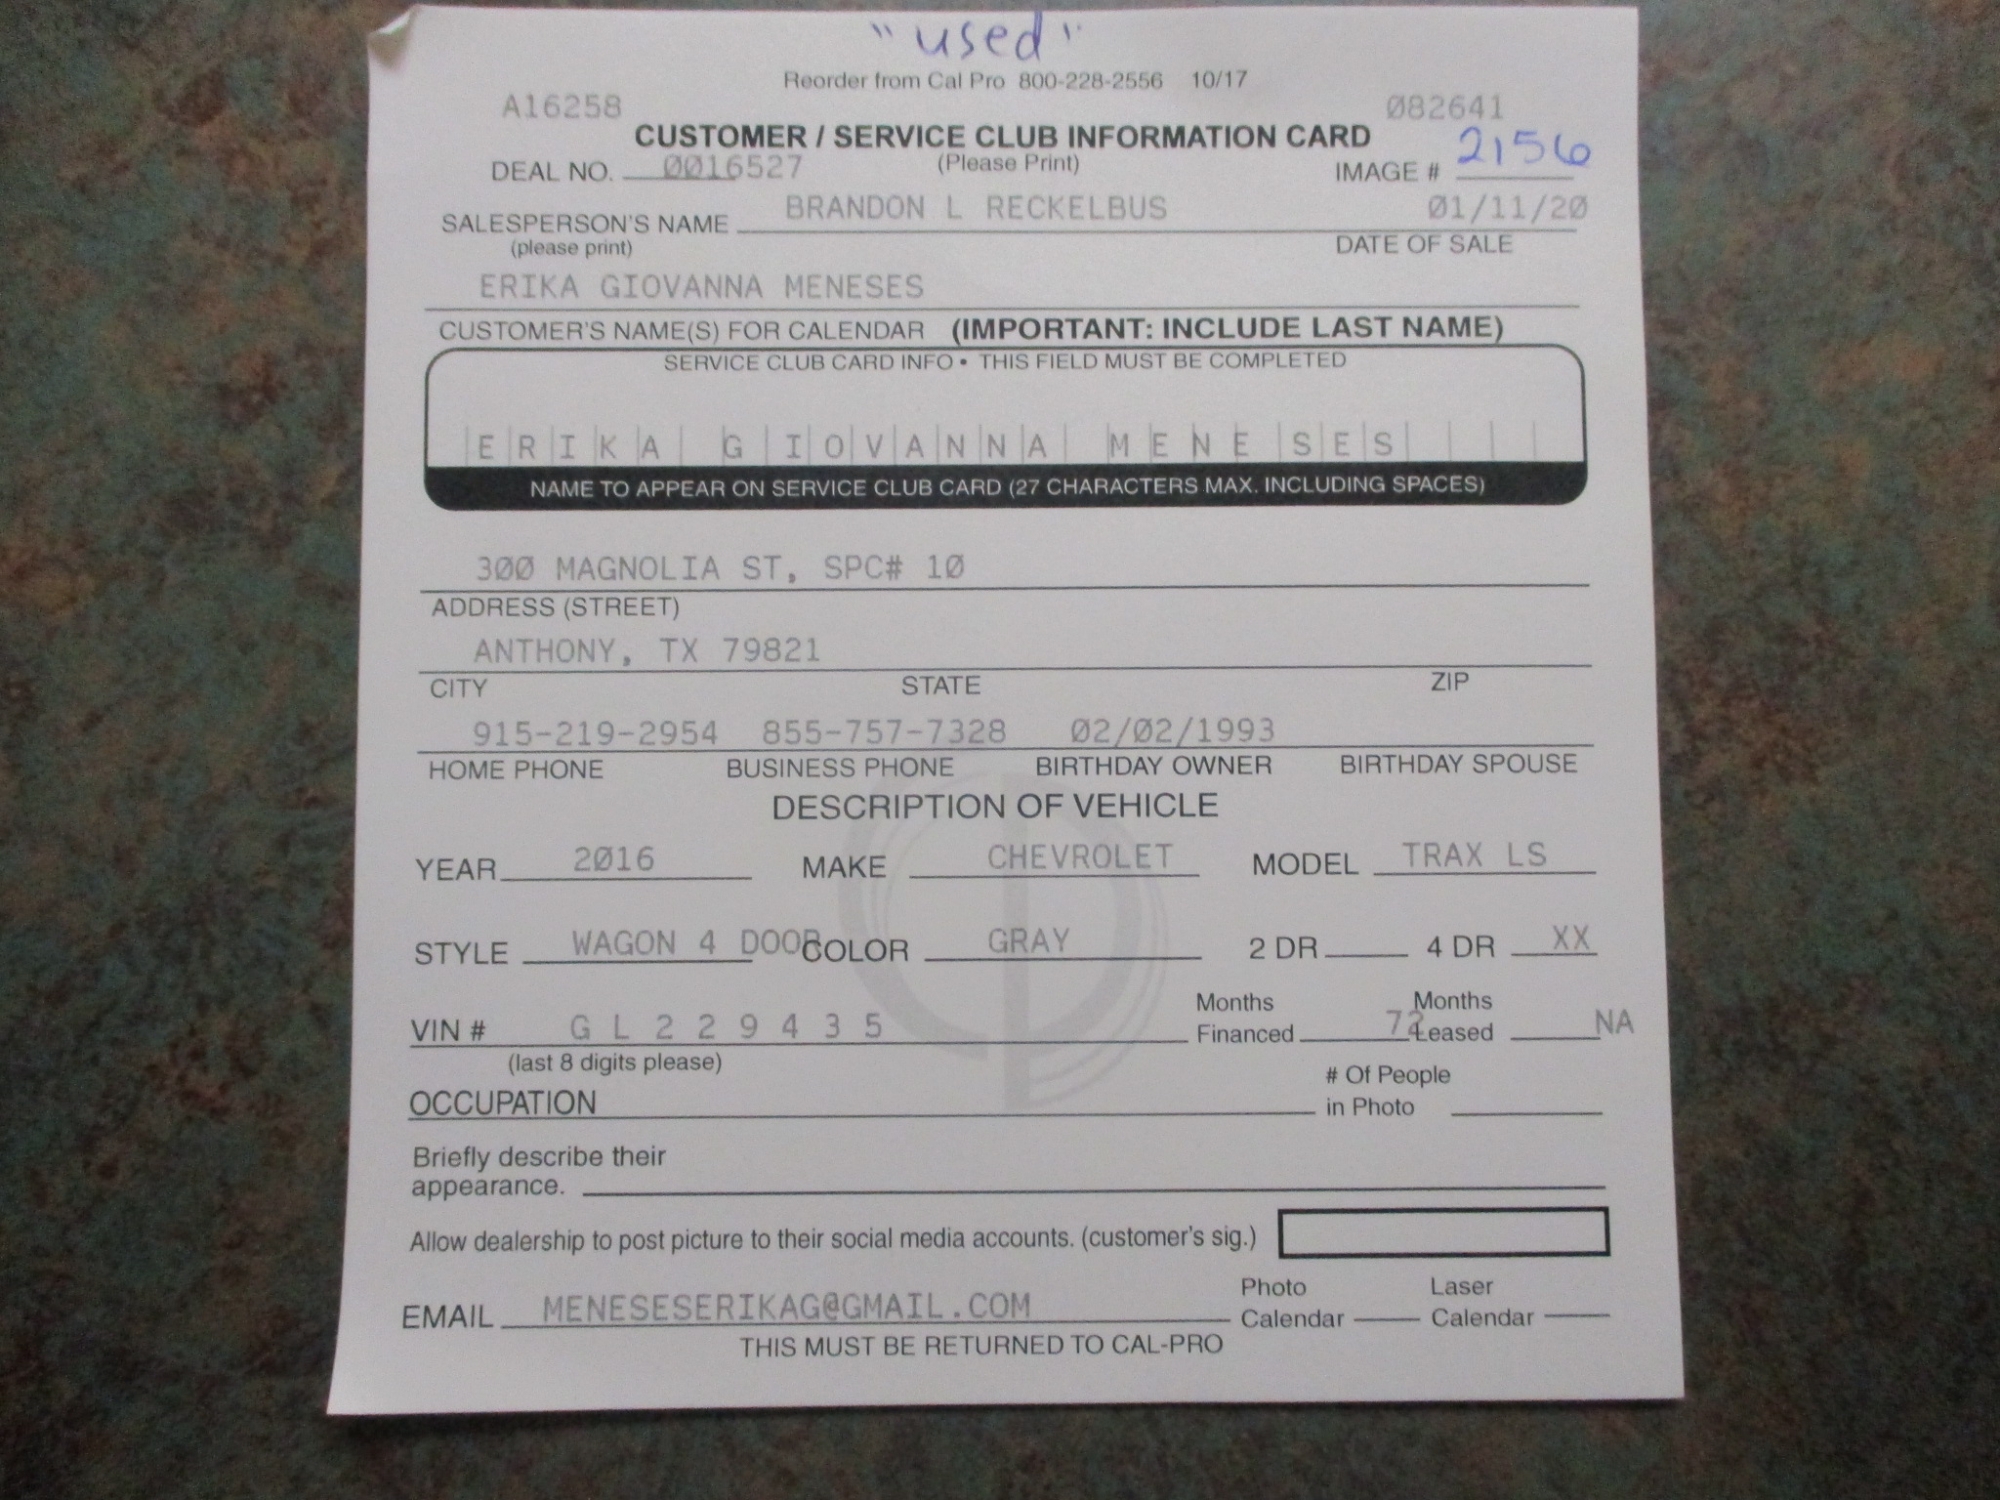 "used"
Reorder from Cal Pro 800-228-2556 10/17
A16258 082641
CUSTOMER / SERVICE CLUB INFORMATION CARD
DEAL NO. 0016527 (Please Print) IMAGE # 2156
SALESPERSON'S NAME BRANDON L RECKELBUS 01/11/20
(please print) DATE OF SALE
ERIKA GIOVANNA MENESES
CUSTOMER'S NAME(S) FOR CALENDAR (IMPORTANT: INCLUDE LAST NAME)
SERVICE CLUB CARD INFO • THIS FIELD MUST BE COMPLETED
ERIKA GIOVANNA MENESES
NAME TO APPEAR ON SERVICE CLUB CARD (27 CHARACTERS MAX. INCLUDING SPACES)
300 MAGNOLIA ST, SPC# 10
ADDRESS (STREET)
ANTHONY, TX 79821
CITY STATE ZIP
915-219-2954 855-757-7328 02/02/1993
HOME PHONE BUSINESS PHONE BIRTHDAY OWNER BIRTHDAY SPOUSE
DESCRIPTION OF VEHICLE
YEAR 2016 MAKE CHEVROLET MODEL TRAX LS
STYLE WAGON 4 DOOR COLOR GRAY 2 DR 4 DR XX
VIN # G L 2 2 9 4 3 5 Months Financed 72 Months Leased NA
(last 8 digits please)
OCCUPATION # Of People in Photo
Briefly describe their
appearance.
Allow dealership to post picture to their social media accounts. (customer's sig.)
EMAIL MENESESERIKAG@GMAIL.COM Photo Calendar Laser Calendar
THIS MUST BE RETURNED TO CAL-PRO